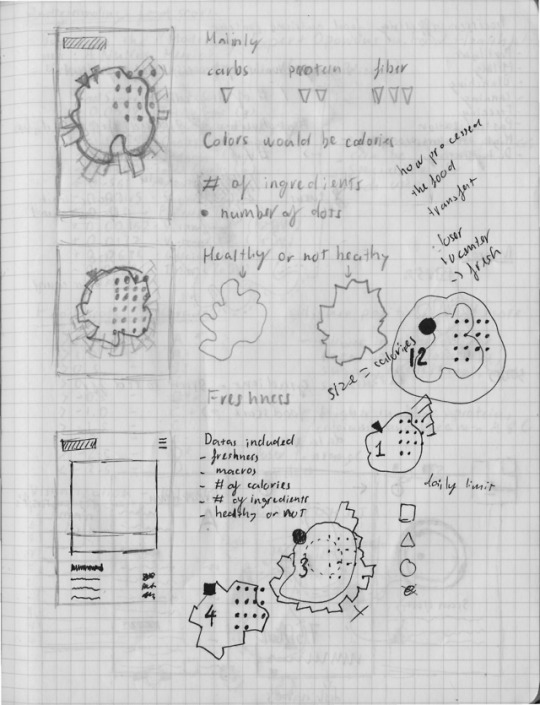 Mainly
carbs protein fiber
Colors would be calories
# of ingredients
• number of dots
how processed
the food
Healthy or not heathy
closer
to center
-> fresh
size = calories
12
Freshness
1
Datas included
- freshness
- macros
- # of calories
- # of ingredients
- healthy or NOT
daily limit
3
4